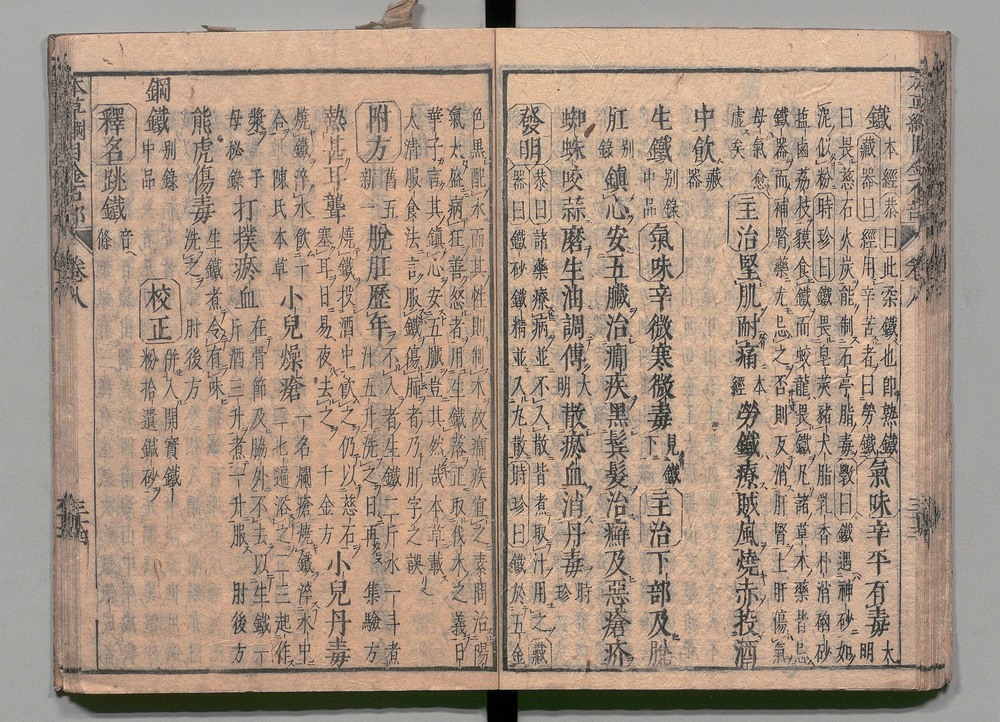 鐵 本經恭曰此柔鐵也即熟鐵 氣味辛平有毒 大明
藏器曰經用辛苦者曰勞鐵
曰畏慈石火炭能制石亭脂毒斅曰鐵遇神砂如
泥似粉時珍曰鐵畏皂莢豬犬脂乳香朴消硇砂
鹽鹵荔枝貘食鐵而蛟龍畏鐵凡諸草木藥皆忌
鐵器而補腎藥尤忌之否則反消肝腎上肝傷氣
母氣愈虛矣 主治堅肌耐痛 本經 勞鐵療賊風燒赤投酒
中飲 藏器
生鐵 別錄中品 氣味辛微寒微毒 見鐵下 主治下部及脫
肛 別錄 鎮心安五臟治癇疾黑鬢髮治癬及惡瘡疥
蜘蛛咬蒜磨生油調傅 大明 散瘀血消丹毒 時珍
發明 恭曰諸藥療病並不入散皆煮取汁用之藏
器曰鐵砂鐵精並入丸散時珍曰鐵於五金
色黑配水而其性則制木故癇疾宜之素問治陽
氣太盛病狂善怒者用生鐵落正取伐木之義日
華子言其鎮心安五臟豈其然哉本草載
太清服食法言服鐵傷肺者乃肝字之誤
附方 舊五新一 脫肛歷年 不入者生鐵二斤水一斗煮汁五升洗之日再 集驗方
熱甚耳聾 燒鐵投酒中飲之仍以慈石塞耳日易夜去之 千金方 小兒丹毒
燒鐵淬水飲一合 陳氏本草 小兒燥瘡 一名爛瘡燒鐵淬水中二七遍浴之二三起作
漿 子母秘錄 打撲瘀血 在骨節及脇外不去以生鐵一斤酒三升煮一升服 肘後方
熊虎傷毒 生鐵煮令有味洗之 肘後方
鋼鐵 別錄中品 校正 併入開寶鐵粉拾遺鍼砂
釋名跳鐵 音條